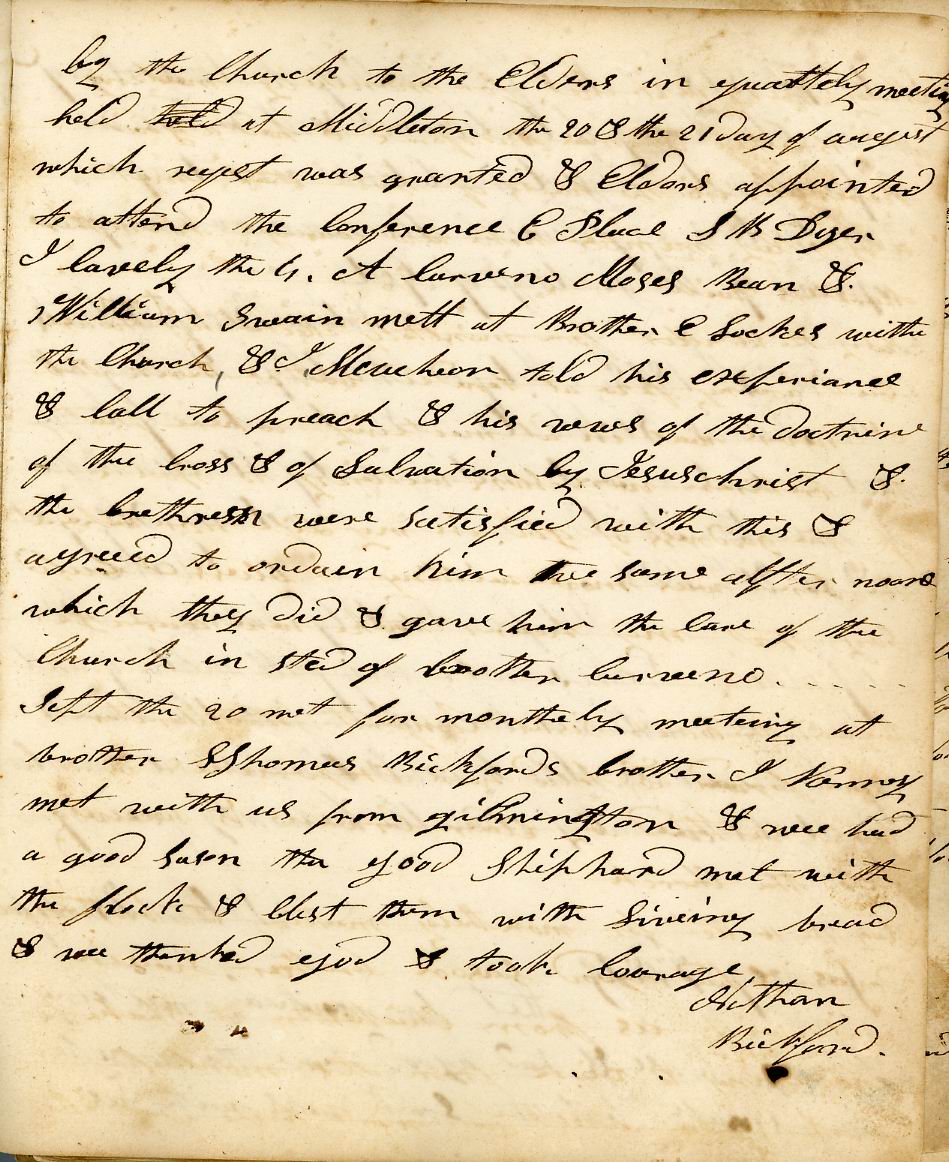 by the Church to the Elders in quattely meeting
held held at Middleton the 20 & the 21 day of august
which reqest was granted & Elders appointed
to attend the Conference E Place S B Dyer
J Cavely the 4. A Caverno Moses Bean &.
William Swain mett at Brother E Lockes withe
the Church, & J Mcucheon told his experiance
& Call to preach & his vews of the doctrine
of the Cross & of Salvation by Jesuschrist &.
the brethren were satisfied with this &
agreed to ordain him the same affter noon
which they did & gave him the Care of the
Church in sted of brother Caverno.
Sept the 20 met for monthely meeteing at
brother Thomas Bickfords brother J
met with us from gilmington & wee had
a good sason the good Shiphard met with
the flock & blest them with liveing bread
& wee thanked god & took Courage
Nathan
Bickford.